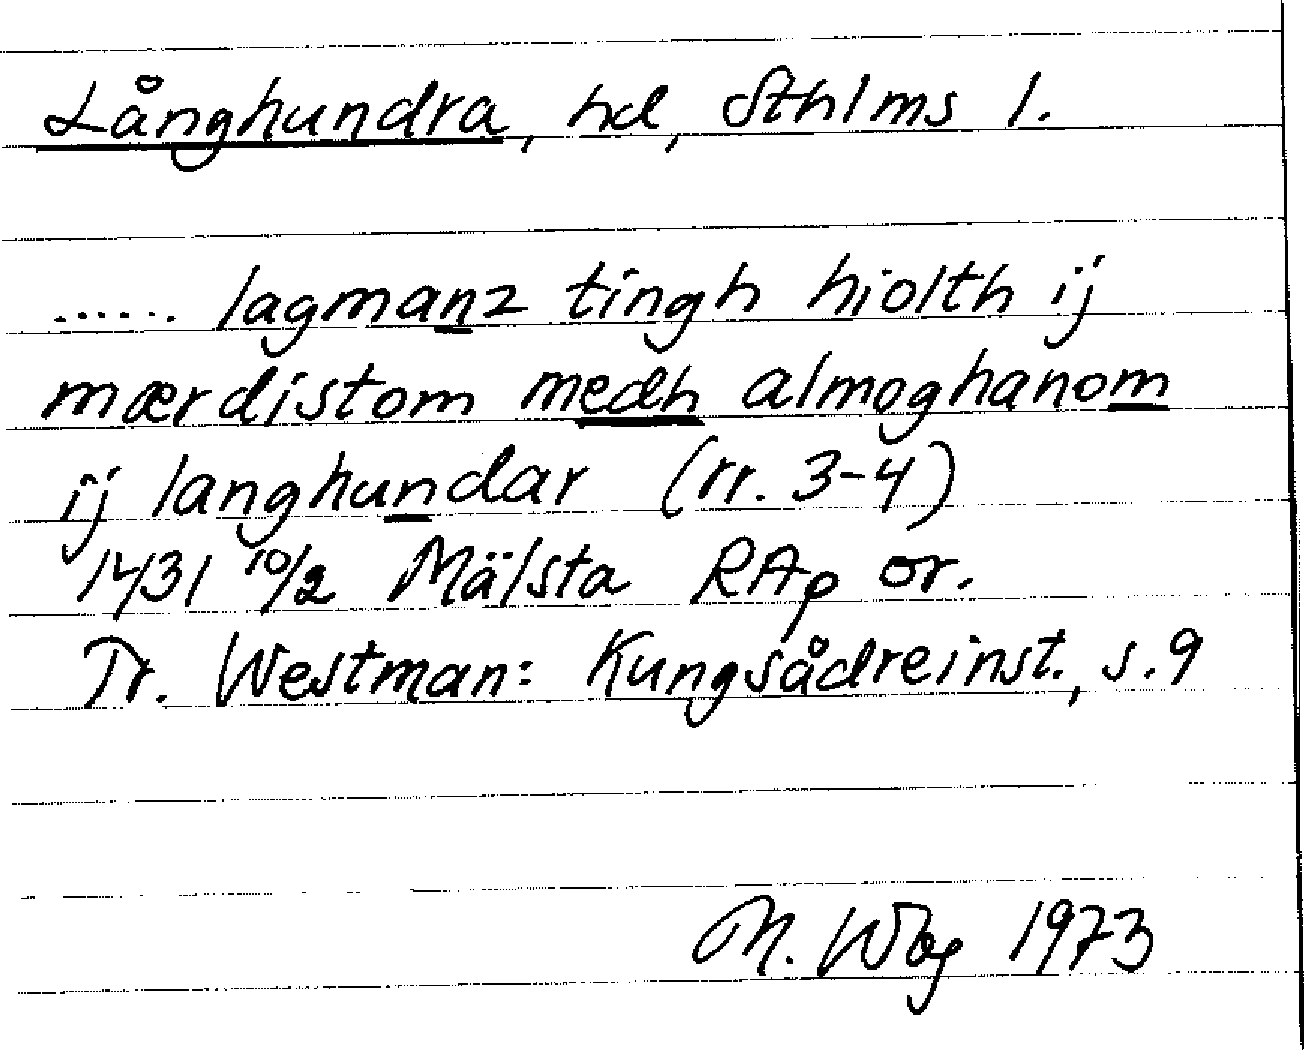 Långhundra, hd, Sthlms l.
...... lagmanz tingh hiolth ij
mærdistom medh almoghanom
ij langhundar (rr. 3-4)
1431 10/2 Mälsta RAp or.
Tr. Westman: Kungsådreinst., s. 9
M. Wbg 1973